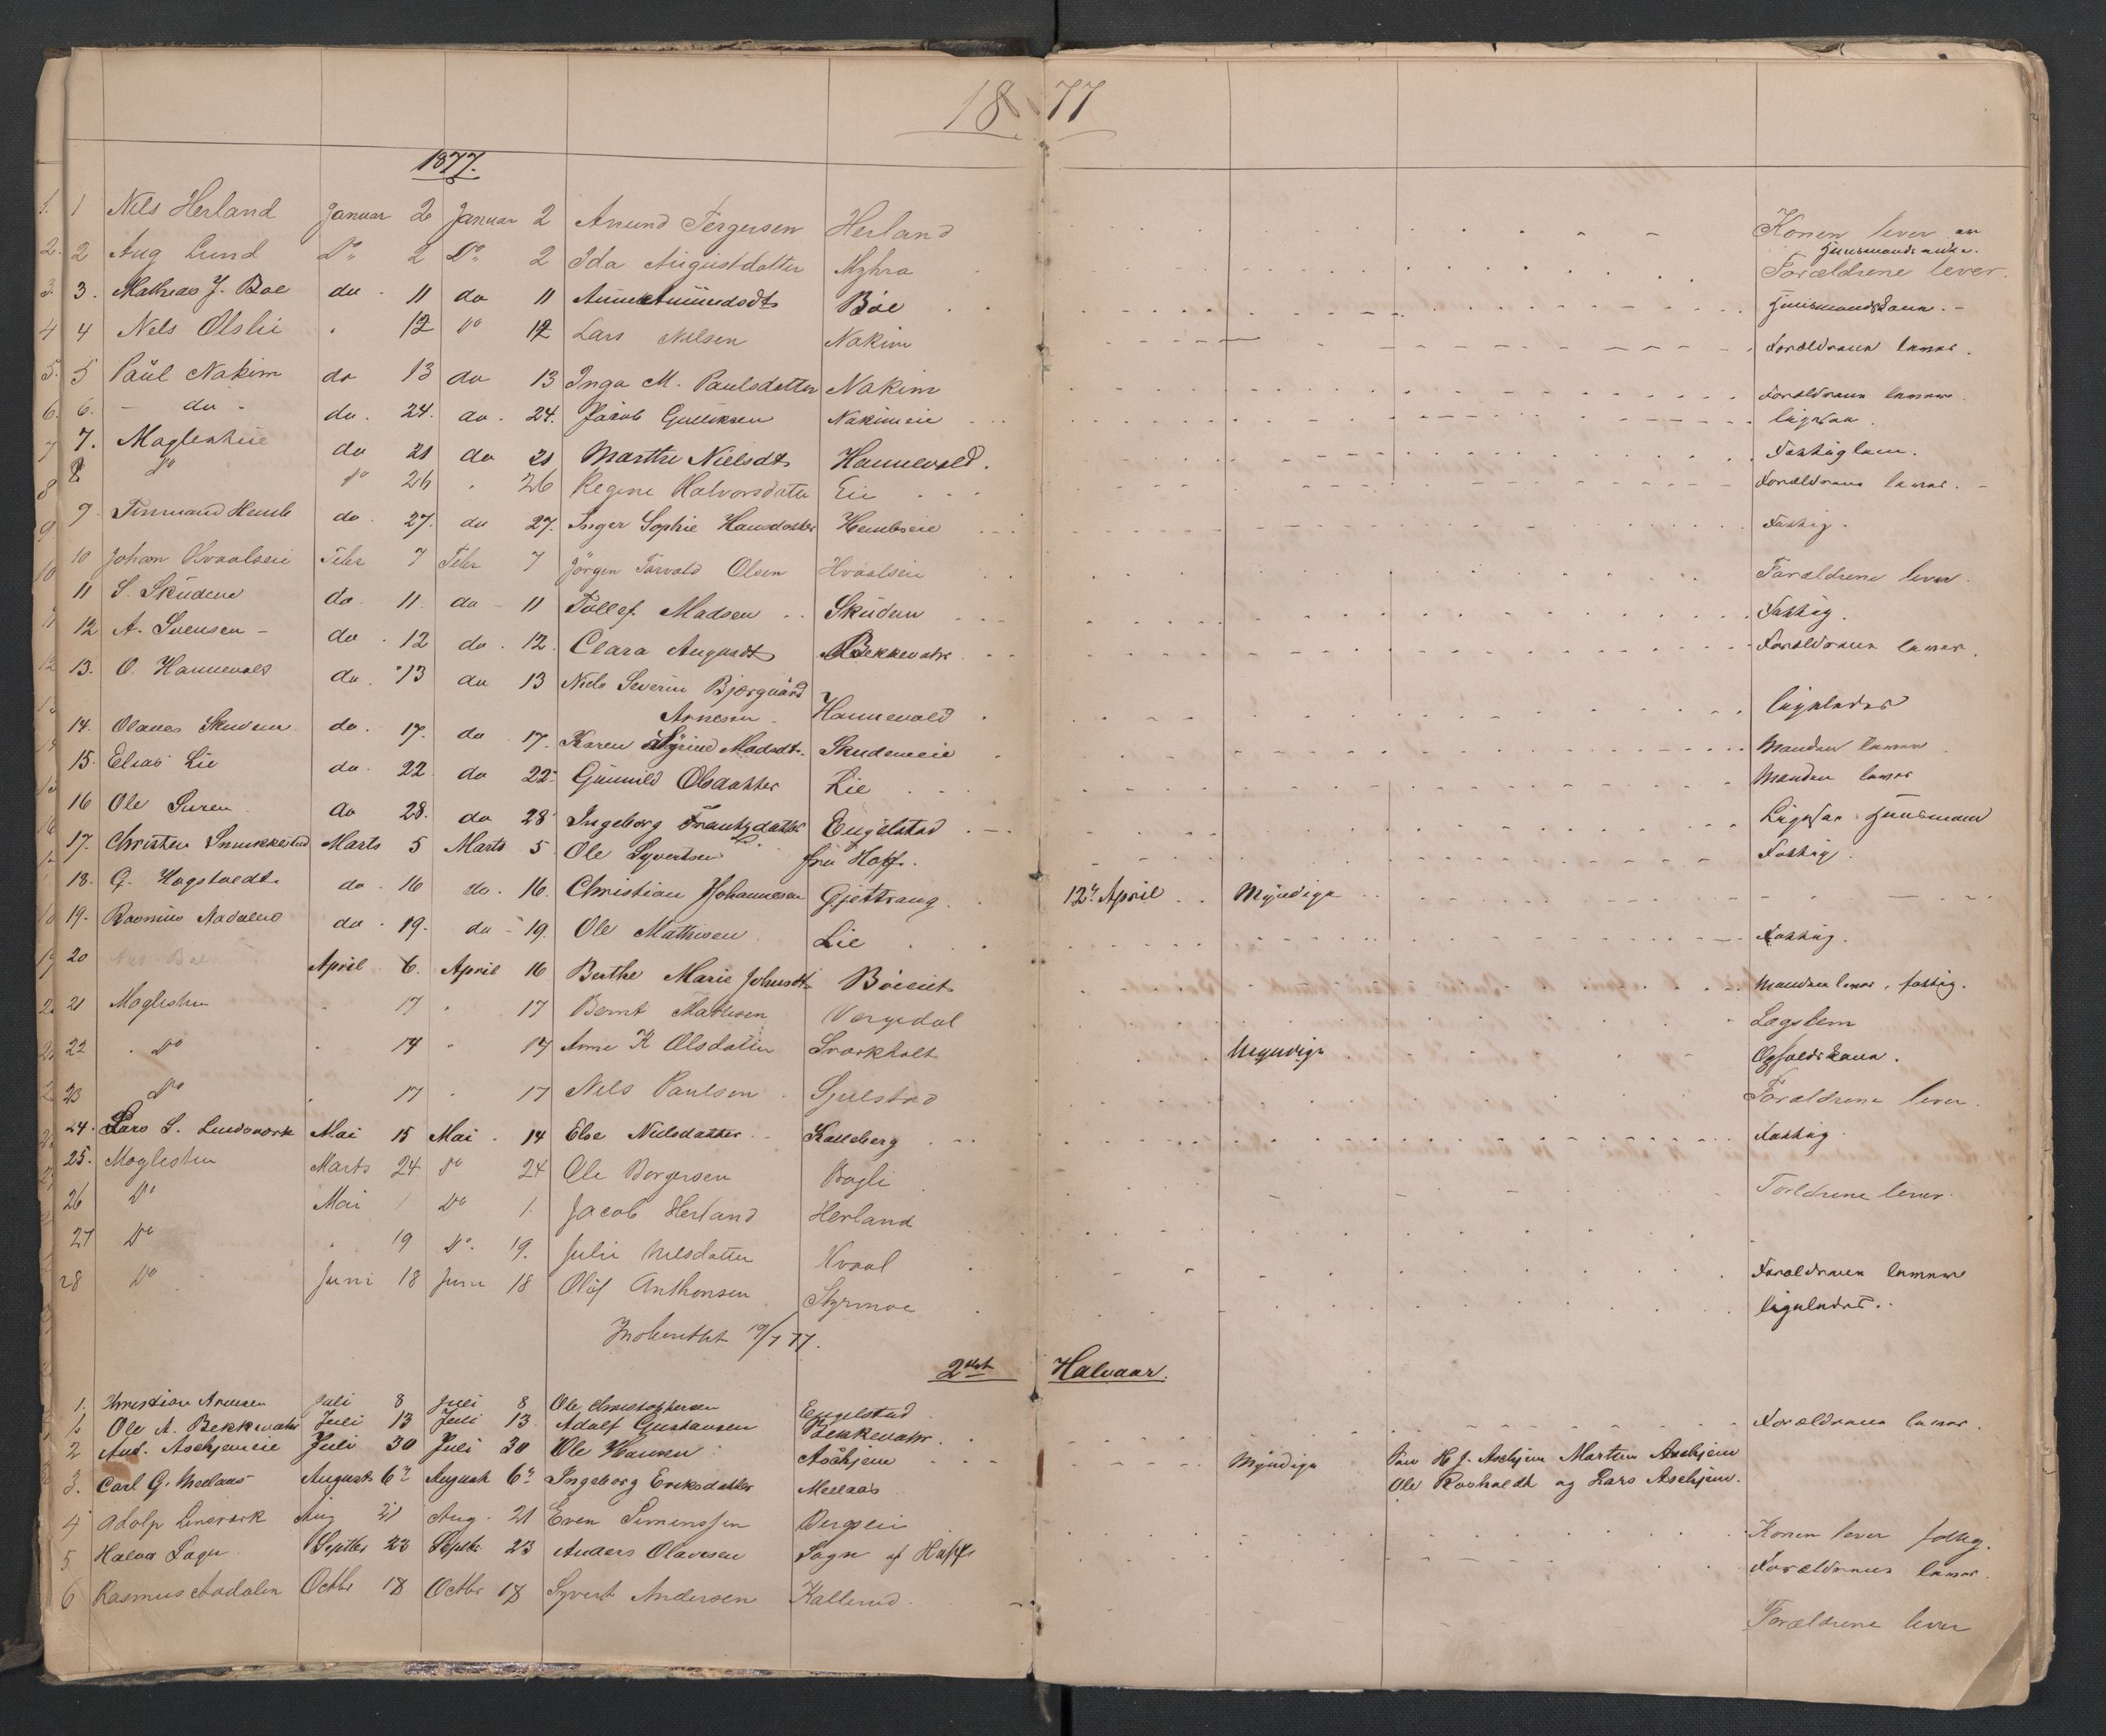 1877
1877.
1. 1 Nels Herland Januar 2 Januar 2 Anund Tergersen Herland Konen lever en
Huusmands enke.
2. 2 Aug Lund Do 2 Do 2 Ida Augustdatter Myhra Forældrene lever.
3. 3. Mathias J. Boe do 11 do 11 Anne Amundsdt Böe Huusmandskone. -
4 4 Nels Olslie 12 Do 12 Lars Nilsen Nakim Forældrene lever.
5. 5 Paul Nakim do 13 do 13 Inga M. Paulsdatter Nakim Forældrene lever.
6. 6. - do - do. 24. do. 24. Jacob Gulliksen Nakimeie ligesaa.
7 7. Moglestue do 21 do 21 Marthe Nielsdt Hannevold. Fattiglem.
8 8 Do Do 26 26 Regine Halvorsdatter Eie Forældrene lever.
9 9. Finmand Hemb do. 27. do 27. Inger Sophie Hansdatter Hembseie Fattig.
10 10 Johan Hvaalseie Febr 7 Febr 7 Jörgen Torvald Olsen Hvaalseie Forældrene lever.
11 11 S. Skuden do 11. do - 11 Tollef Madsen Skuden Fattig.
12 12 A. Svensen - do. 12 do. 12. Clara Augustdt Bekkevahr Forældrene lever.
13 13. O. Hannevold do. 13 do 13 Niels Severin Bjørgaard
Arnesen - Hannevold ligeledes
14. Olaves Skuden do. 17. do. 17. Karen Sÿrine Madsdt. Skudeneie Manden lever
15. Elias Lie do. 22. do 22. Gunnild Olsdatter Lie Manden lever
16 Ole Suren do 28. do 28 Ingeborg Frantzdatter Engelstad Ligesaa Huusmand
17. Christen Smukkestad Marts 5 Marts 5. Ole Syvertsen fra Hoff. Fattig.
18. G. Hogstvedt do - 16 do. 16. Christian Johannesen Gjettrang 12te April Myndige
19. Rasmus Aadalen do. 19. do - 19. Ole Mathisen Lie Fattig.
20 April 6. April 16 Berthe Marie Johnsdt Böeeiet Manden lever, fattig.
21 Moglestue 17 17 Bernt Mathisen Vergedal Lægslem
22 Do 14 14 Anne K Olsdatter Svarkholt Myndige Opholdskone.
23 Do 17 17 Nels Paulsen Gjelstad Forældrene lever.
24. Lars S. Lindsværk Mai 15 Mai. 14 Else Nielsdatter Kalleberg Fattig
25. Moglestue Marts 24 Do 24 Ole Borgersen Bagli Forldrene lever.
26 Do Mai 1 Do 1. Jacob Herland Herland
27 Do 19 Do. 19. Julie Nelsdatter Hvaal Forældrene lever
28 Do Juni 18 Juni 18 Olöf Anthonsen Styrmoe ligeledes.
Inberettet 19/7 77.
2det Halvaar.
1. Christian Arnesen Juli 8 Juli 8 Ole Christophersen Engelstad
1. Ole A. Bekkevahr Juli 13 Juli 13. Adolf Gustavsen Bekkevahr. Forældrene lever.
2 And. Aschjemeie Juli 30 Juli 30 Ole Hansen Aschjem Myndige H J. Aschjem Martin Aschjem
Ole Rosholdt og Lars Aschjem.
3. Carl G. Meelaas August 6te August 6te Ingeborg Eriksdatter Meelaas
4 Adolp Linsværk Aug 21 Aug. 21 Even Simenssen Bergseie Konen lever fattig.
5 Halvor Sagn Septbr 23 Septbr 23 Anders Olavesen Sagn af Hoff Forældrene lever.
6 Rasmus Aadalen Octbr 18 Octbr 18 Syvert Andersen Kallerud. Forældrene lever